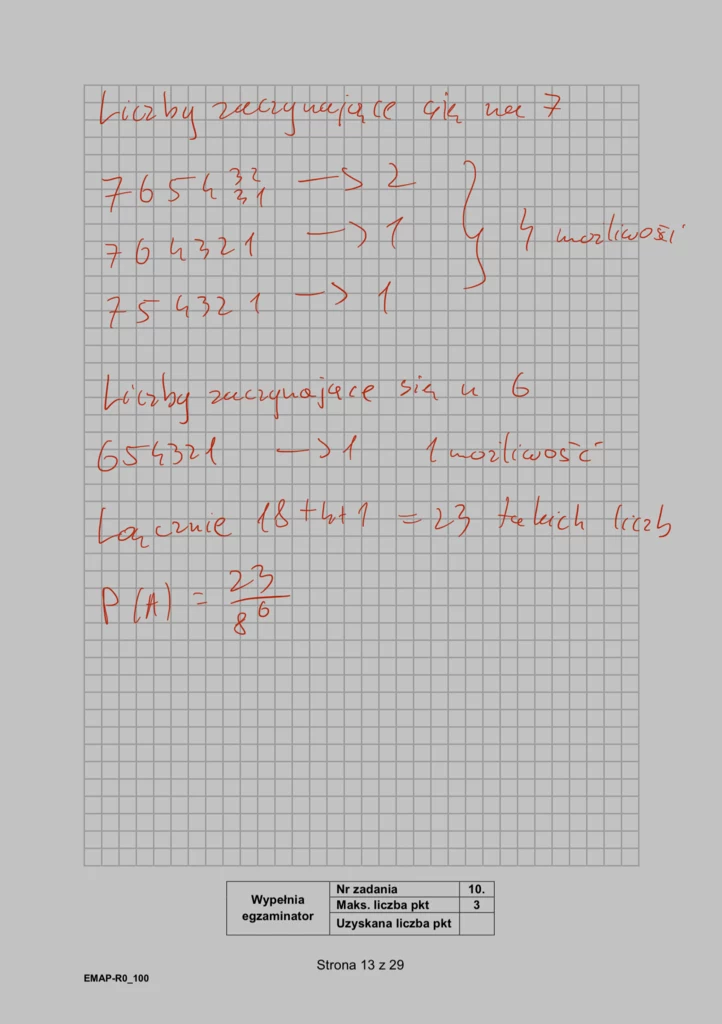 Liczby zaczynające się na 7
7654 32 31 —> 2
764321 —> 1
} 4 możliwości
754321 —> 1
Liczby zaczynające się n 6
654321 —> 1 1 możliwość
Łącznie 18+4+1 = 23 takich liczb
P(A) = 23/8^6
Wypełnia egzaminator
Nr zadania 10.
Maks. liczba pkt 3
Uzyskana liczba pkt
Strona 13 z 29
EMAP-R0_100